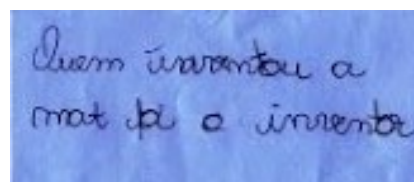 Quem inventou a
mat foi o inventor